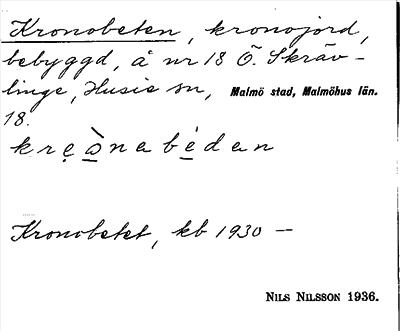 Kronobeten, kronojord,
bebyggd, å nr 18 Ö. Skräv-
linge, Husie sn, Malmö stad, Malmöhus län.
18.
Kronobetet, kb 1930 —
NILS NILSSON 1936.